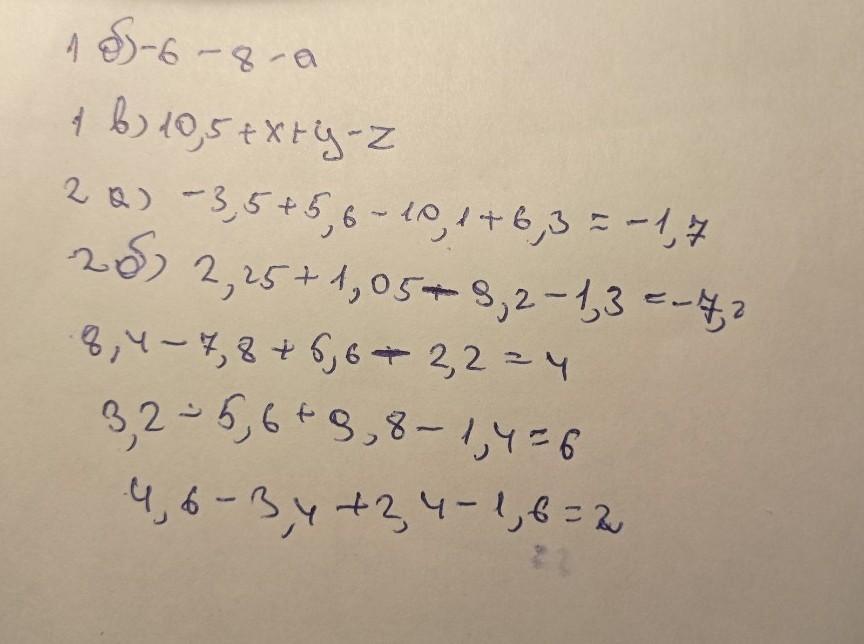 1 б) -6 - 8 - a
1 в) 10,5 + x + y - z
2 а) -3,5 + 5,6 - 10,1 + 6,3 = -1,7
2 б) 2,25 + 1,05 - 9,2 - 1,3 = -7,2
8,4 - 7,8 + 5,6 - 2,2 = 4
3,2 - 5,6 + 9,8 - 1,4 = 6
4,6 - 3,4 + 2,4 - 1,6 = 2